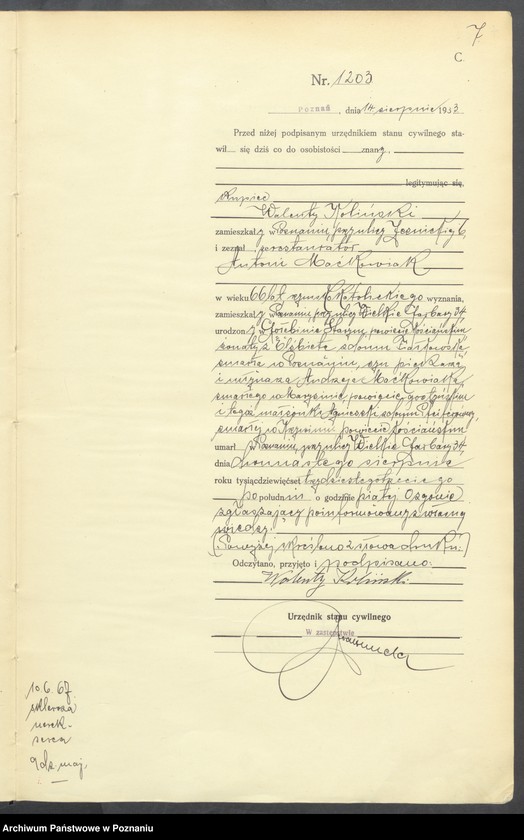 7
C.
Nr. 1203
Poznań, dnia 14 sierpnia 1933
Przed niżej podpisanym urzędnikiem stanu cywilnego sta-
wił się dziś co do osobistości znany,
legitymując się,
kupiec
Walenty Koliński
zamieszkały w Poznaniu, przy ulicy 6,
i zeznał, że restaurator
Antoni Maćkowiak
w wieku 66 lat, rzymsk. katolickiego wyznania,
zamieszkały w Poznaniu, przy ulicy Wielkie Garbary 34,
urodzony w Starym, powiecie kościańskim
żonaty z Elżbietą z domu
zmarłą w Poznaniu, syn
i młynarza Andrzeja Maćkowiaka,
zmarłego w powiecie gostyńskim
i tegoż małżonki Agnieszki z domu
zmarłej w powiecie kościańskim
umarł w Poznaniu, przy ulicy Wielkie Garbary 34,
dnia sierpnia
roku tysiąc dziewięćset trzydziestego trzeciego
po południu o godzinie piątej. O zgonie
zgłaszający poinformowany z własnej
wiedzy.
Powyżej skreślono 2 słowa druku.
Odczytano, przyjęto i podpisano:
Walenty Koliński
Urzędnik stanu cywilnego
W zastępstwie
10. 6. 67
skleroza
nerek-
serca
Archiwum Państwowe w Poznaniu